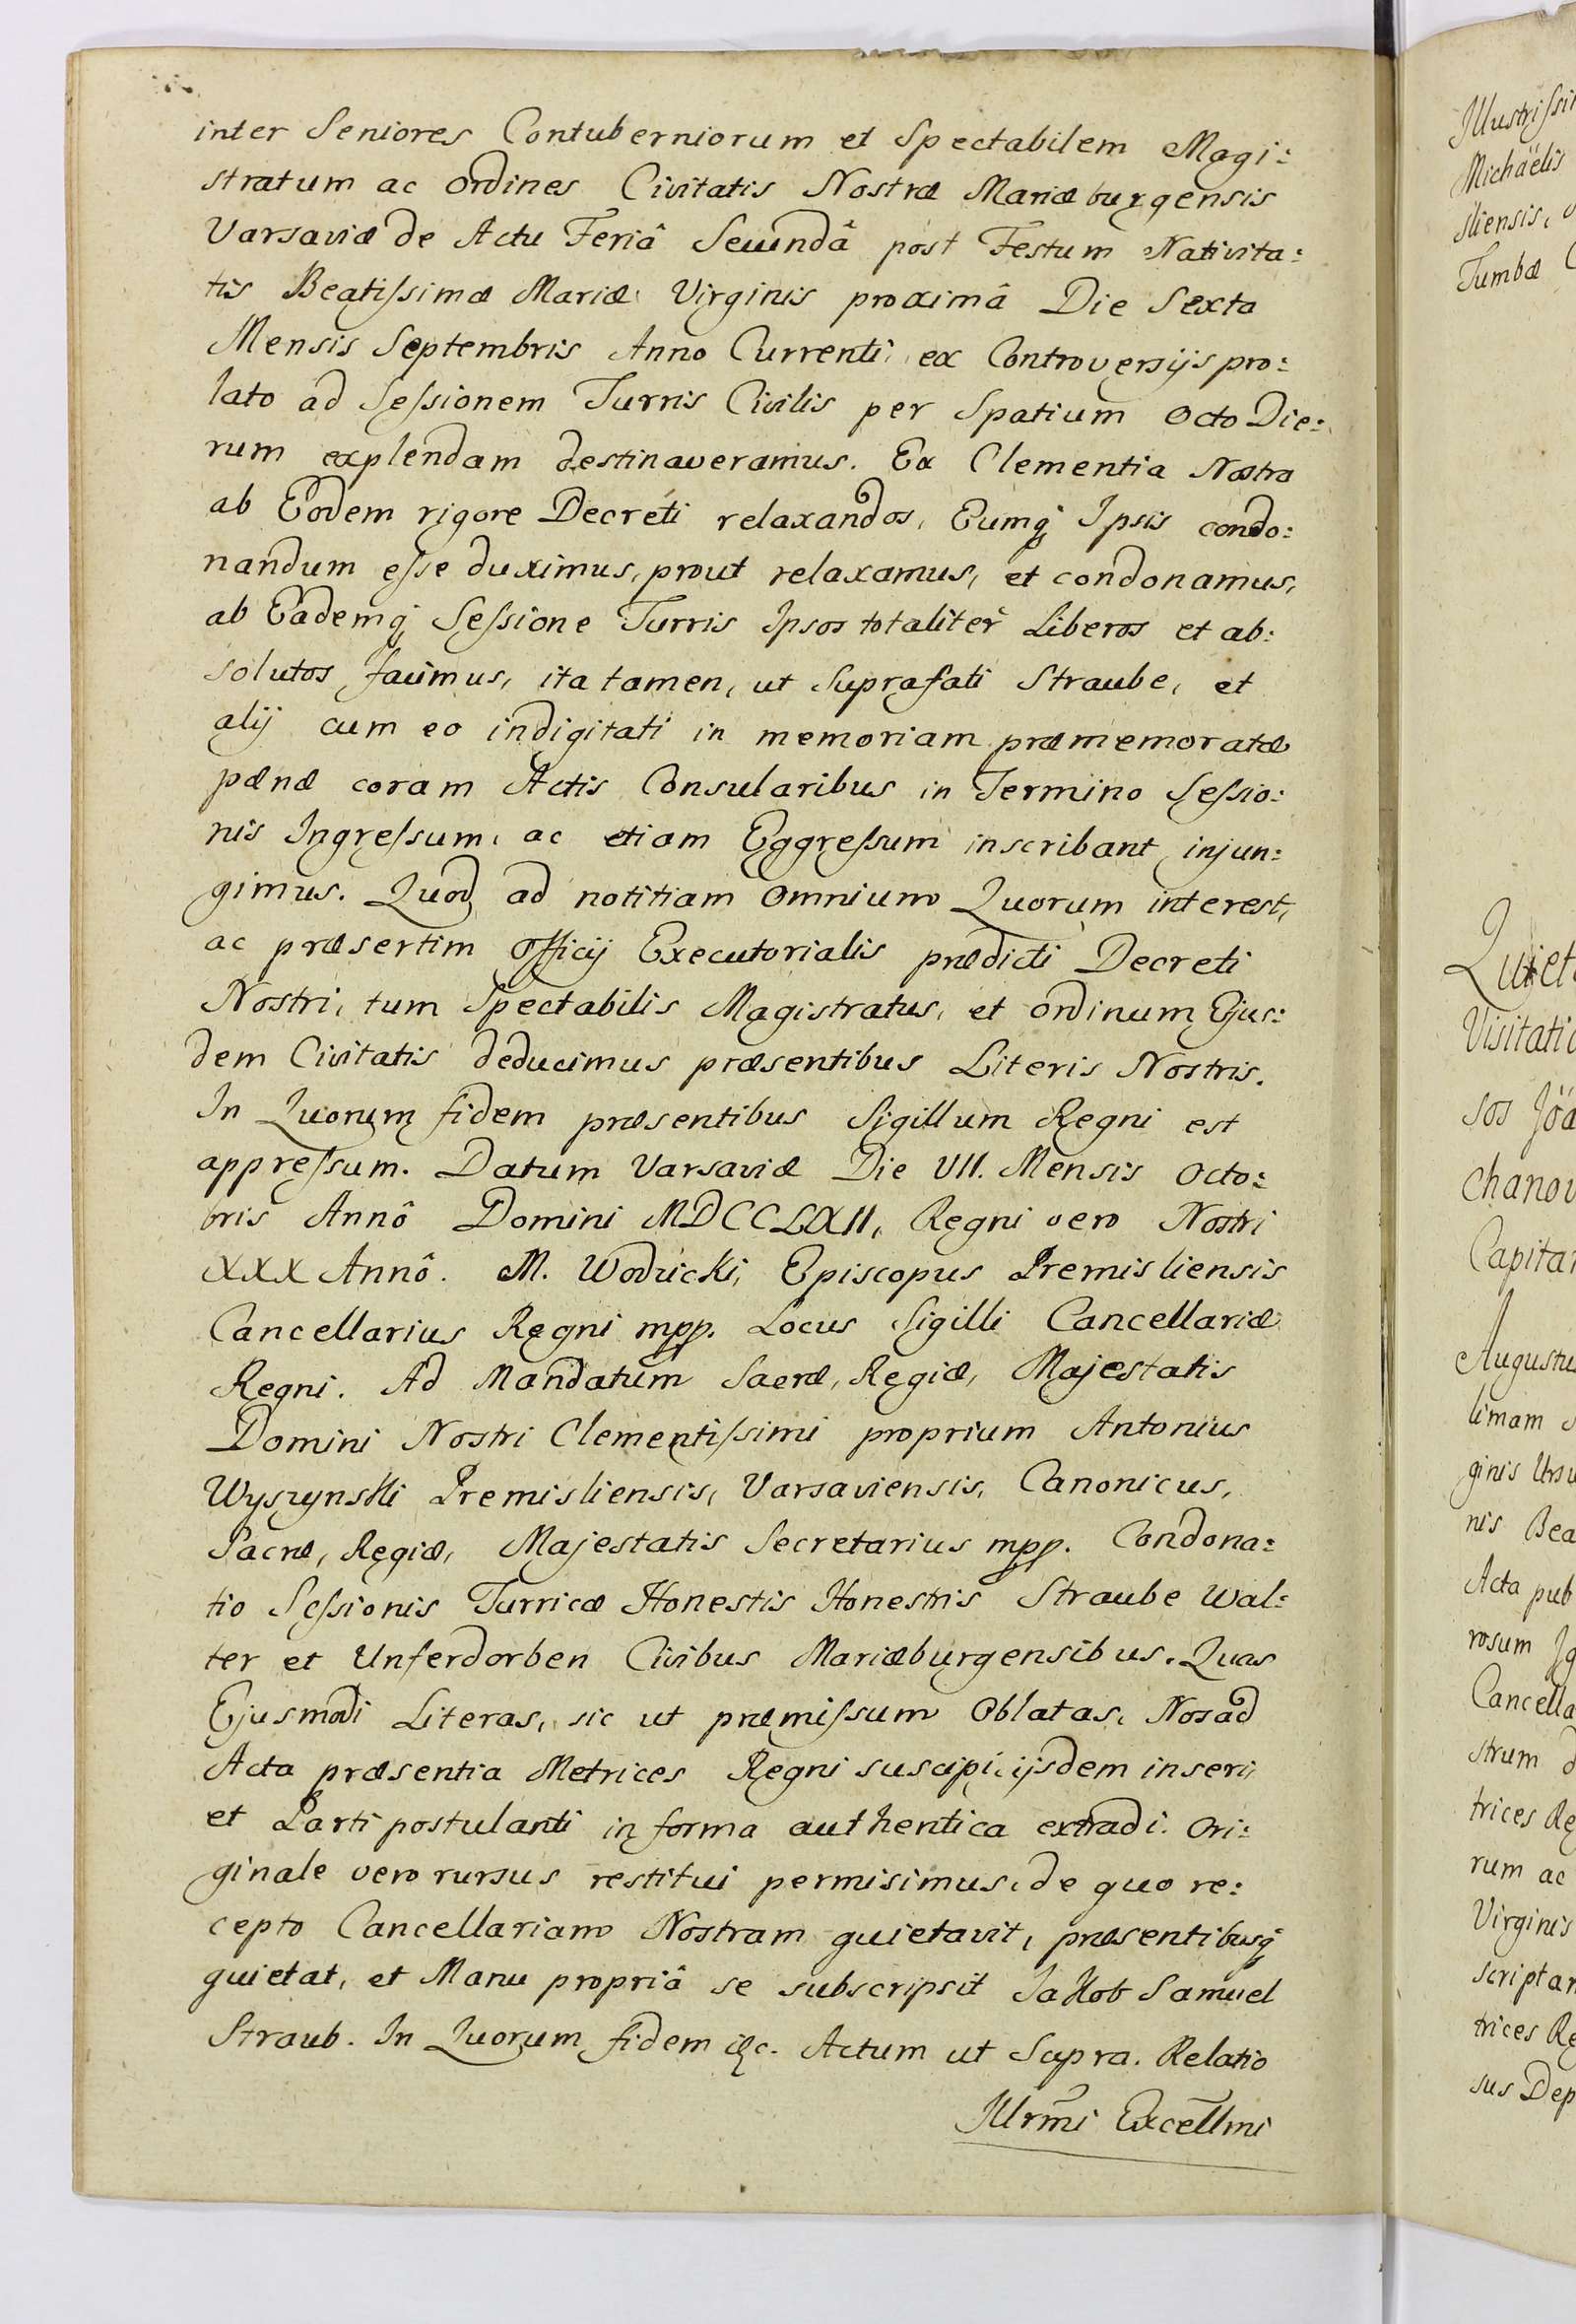 inter Seniores Contuberniorum et Spectabilem Magi:
stratum ac Ordines Civitatis Nostræ Mariæburgensis
Varsaviæ de Actu Feriâ Secundâ post Festum Nativita:
tis Beatissimæ Mariæ Virginis proximâ Die Sexta
Mensis Septembris Anno Currenti, ex Controversijs pro:
lato ad Sessionem Turris Civilis per Spatium Octo Die:
rum explendam destinaveramus. Ex Clementia Nostra
ab Eodem rigore Decreti relaxandos, Eumq́ Ipsis condo:
nandum esse duximus, prout relaxamus, et condonamus,
ab Eademq́ Sessione Turris Ipsos totaliter Liberos et ab:
solutos facimus, ita tamen, ut Suprafati Straube, et
alij cum eo indigitati in memoriam præmemoratæ
pænæ coram Actis Consularibus in Termino Sessio:
nis Ingressum, ac etiam Eggressum inscribant injun:
gimus. Quod ad notitiam Omnium Quorum interest,
ac præsertim Officij Executorialis prædicti Decreti
Nostri, tum Spectabilis Magistratus, et Ordinum Ejus:
dem Civitatis deducimus præsentibus Literis Nostris.
In Quorum fidem præsentibus Sigillum Regni est
appressum. Datum Varsaviæ Die VII. Mensis Octo:
bris Annô Domini MDCCLXII, Regni vero Nostri
XXX Annô. M. Wodzicki, Episcopus Premisliensis
Cancellarius Regni mpp. Locus Sigilli Cancellariæ
Regni. Ad Mandatum Sacræ, Regiæ, Majestatis
Domini Nostri Clementissimi proprium Antonius
Wyszynski Premisliensis, Varsaviensis, Canonicus,
Sacræ, Regiæ, Majestatis Secretarius mpp. Condona:
tio Sessionis Turricæ Honestis Honestris Straube Wal:
ter et Unferdorben Civibus Mariæburgensibus. Quas
Ejusmodi Literas, sic ut præmissum Oblatas, Nos ad
Acta præsentia Metrices Regni suscipi, ijsdem inseri,
et Parti postulanti in forma authentica extradi. Ori:
ginale vero rursus restitui permisimus, de quo re:
cepto Cancellariam Nostram quietavit, præsentibusq́
quietat, et Manu propriâ se subscripsit Jakob Samuel
Straub. In Quorum fidem &c. Actum ut Supra. Relatio
Illrm̄i Excell̄mi
Michaëlis
sliensis,
Tumbæ
sos
Capitan
Augustus
limam
ginis Ursu
nis Bea
Acta pub
rosum Ig
Cancella
strum d
trices Re
rum ac
Virginis
scriptar
trices Re
sus Dep